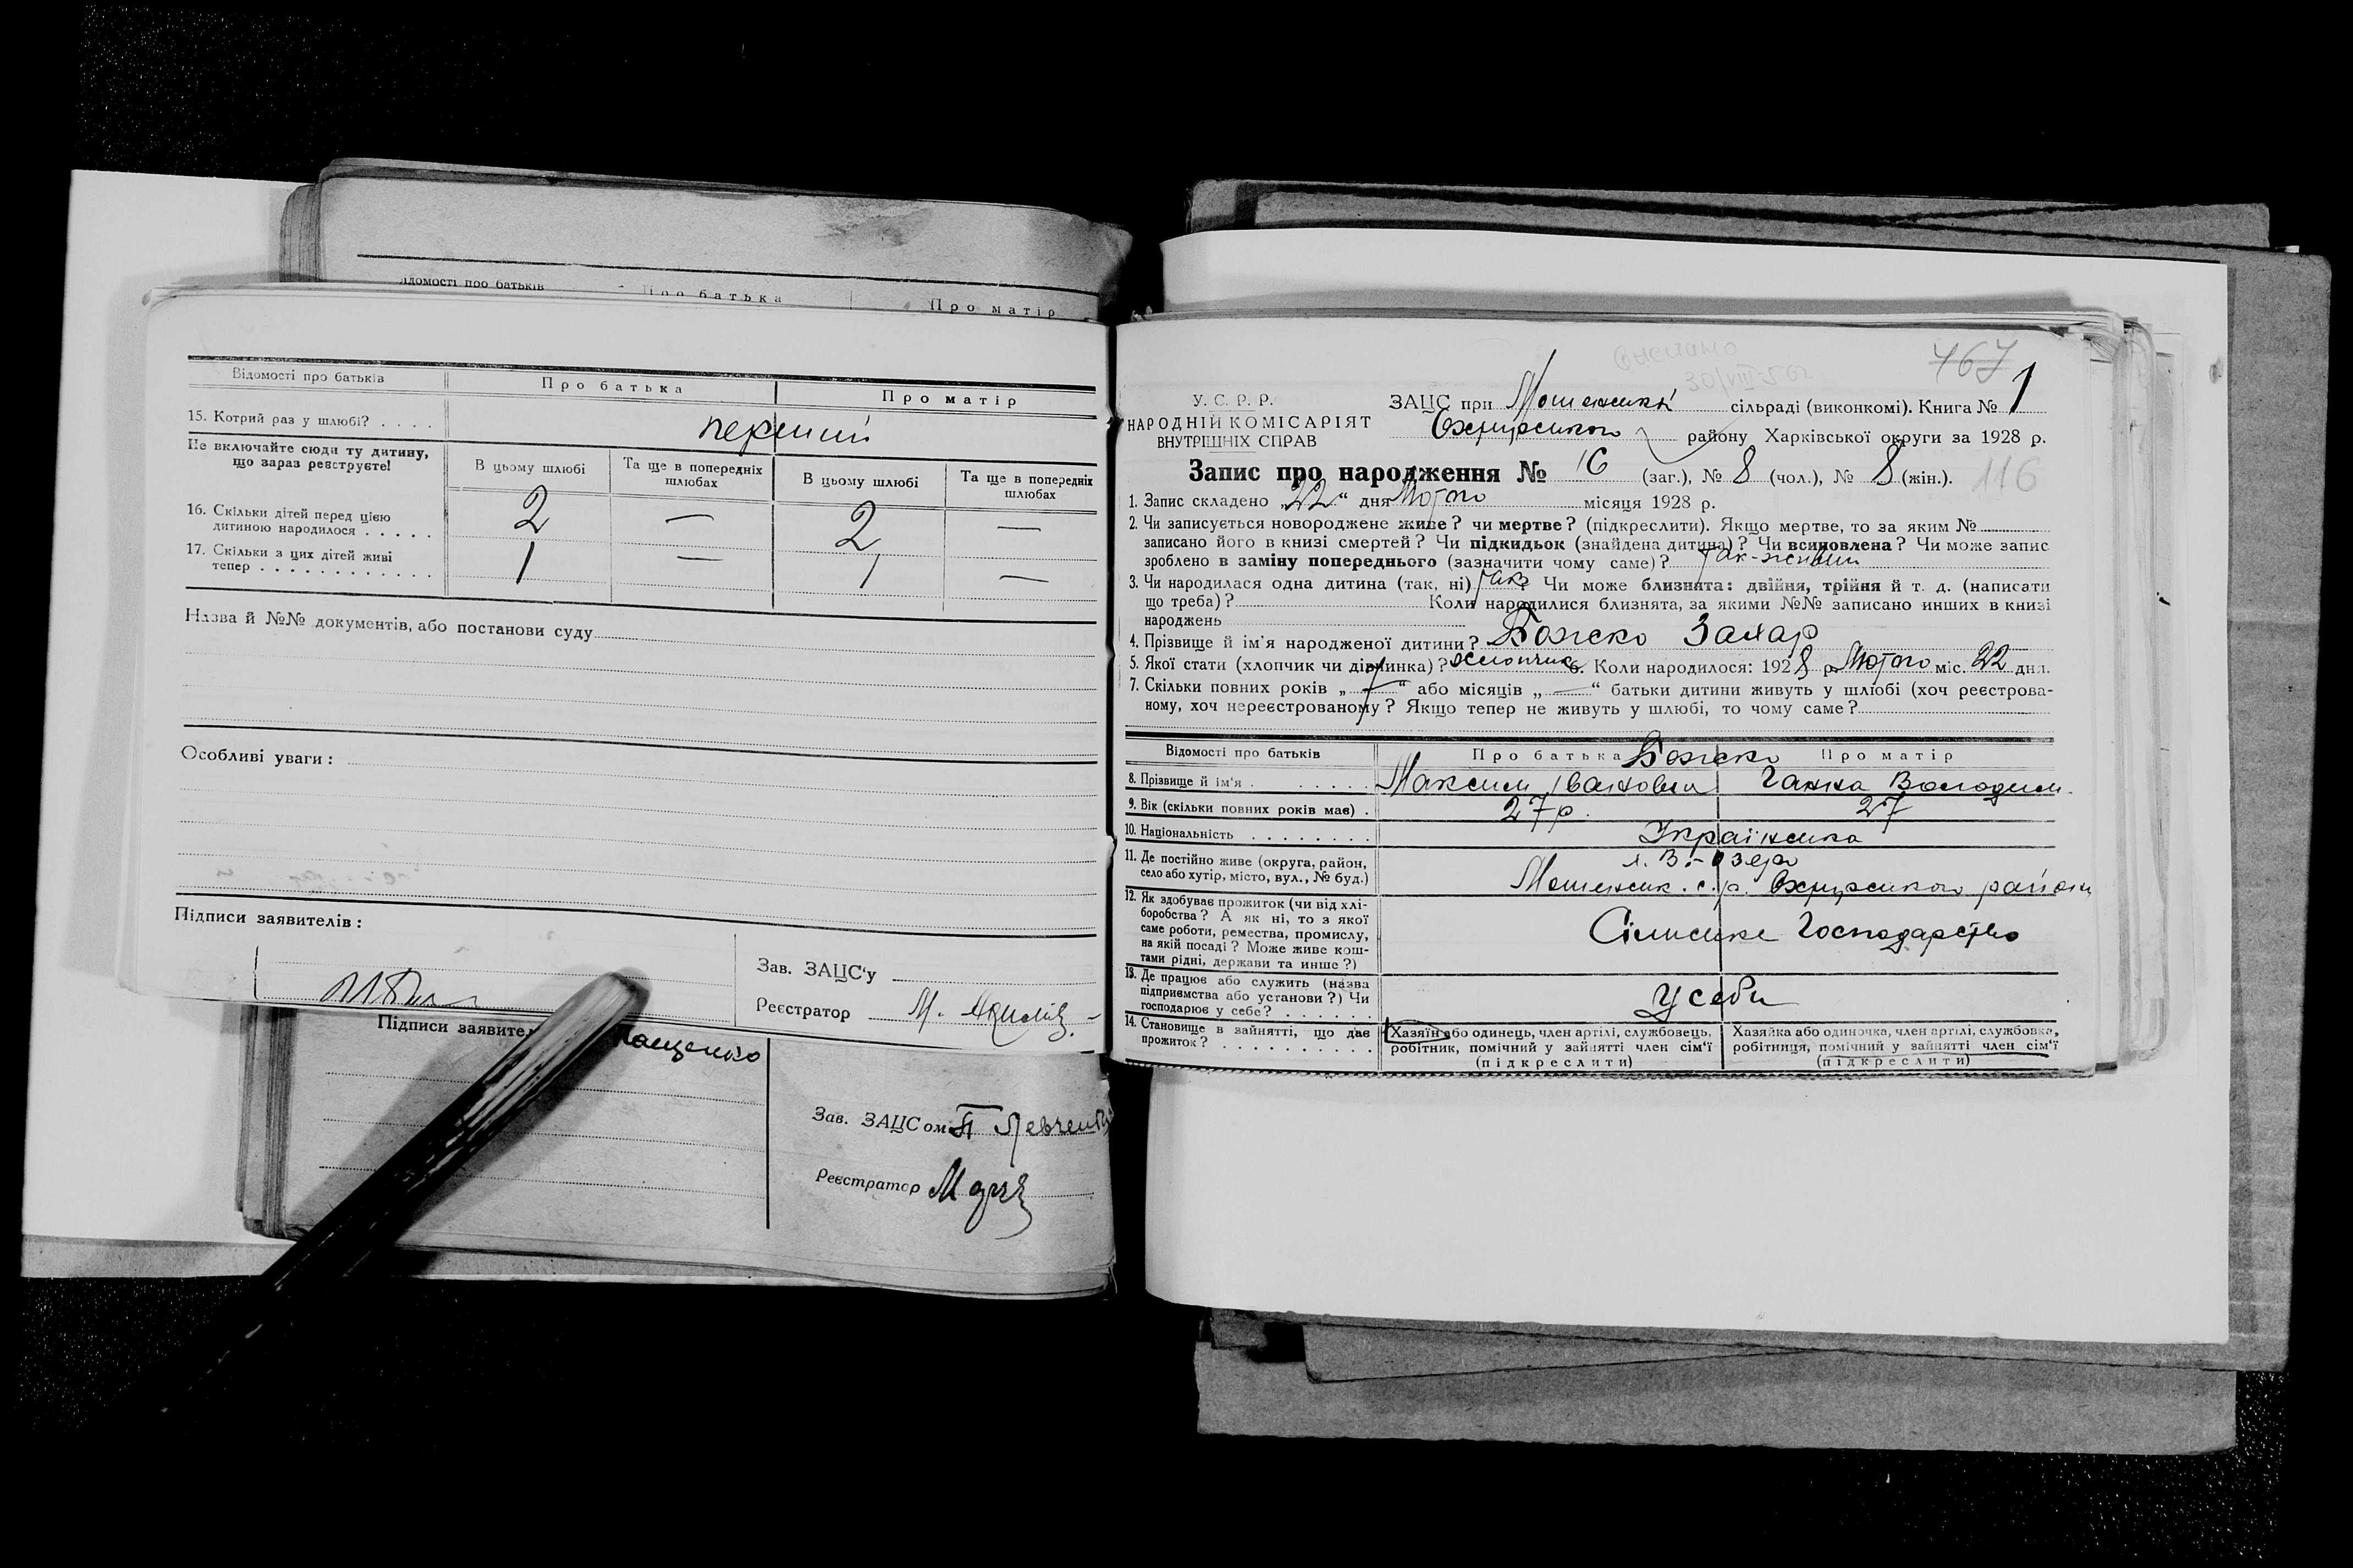 ідомості про батьків Про батька Про матір
Відомості про батьків Про батька Про матір
15. Котрий раз у шлюбі? . . . . перший
Не включайте сюди ту дитину, що зараз реєструєте!
В цьому шлюбі Та ще в попередніх шлюбах В цьому шлюбі Та ще в попередніх шлюбах
16. Скільки дітей перед цією
дитиною народилося . . . . . 2 — 2 —
17. Скільки з цих дітей живі
тепер . . . . . . . . . . . . 1 — 1 —
Назва й №№ документів, або постанови суду
Особливі уваги:
Підписи заявителів:
Зав. ЗАЦС'у
Реєстратор М.
Підписи заявител
Зав. ЗАЦСом П Левченко
Реєстратор
467 1
116
У. С. Р. Р.
НАРОДНІЙ КОМІСАРІЯТ
ВНУТРІШНІХ СПРАВ
ЗАЦС при сільраді (виконкомі). Книга №
Охтирського району Харківської округи за 1928 р.
Запис про народження № 16 (заг.), № 8 (чол.), № 8 (жін.).
1. Запис складено „22" дня Лютого місяця 1928 р.
2. Чи записується новороджене живе? чи мертве? (підкреслити). Якщо мертве, то за яким №
записано його в книзі смертей? Чи підкидьок (знайдена дитина)? Чи всиновлена? Чи може запис
зроблено в заміну попереднього (зазначити чому саме)? Так-живий
3. Чи народилася одна дитина (так, ні) так Чи може близнята: двійня, трійня й т. д. (написати
що треба)? Коли народилися близнята, за якими №№ записано инших в книзі
народжень
4. Прізвище й ім'я народженої дитини? Божко Захар
5. Якої стати (хлопчик чи дівчинка)? хлопчик 6. Коли народилося: 1928 р. Лютого міс. 22 дня.
7. Скільки повних років „ — " або місяців „ — " батьки дитини живуть у шлюбі (хоч реєстрова-
ному, хоч нереєстрованому? Якщо тепер не живуть у шлюбі, то чому саме?
Відомості про батьків Про батька Божко Про матір
8. Прізвище й ім'я . . . . . . Максим Іванович Ганна Володим.
9. Вік (скільки повних років має) . 27 р. 27
10. Національність . . . . . . . . Українська
11. Де постійно живе (округа, район,
село або хутір, місто, вул., № буд.) с. р. Охтирського району
12. Як здобуває прожиток (чи від хлі-
боробства? А як ні, то з якої
саме роботи, ремества, промислу,
на якій посаді? Може живе кош-
тами рідні, держави та инше?) Сільське Господарство
13. Де працює або служить (назва
підприємства або установи?) Чи
господарює у себе? . . . . . . У себе
14. Становище в зайнятті, що дає
прожиток? . . . . . . . . . .
Хазяїн або одинець, член артілі, службовець,
робітник, помічний у зайнятті член сім'ї
(підкреслити)
Хазяйка або одиночка, член артілі, службовка,
робітниця, помічний у зайнятті член сім'ї
(підкреслити)